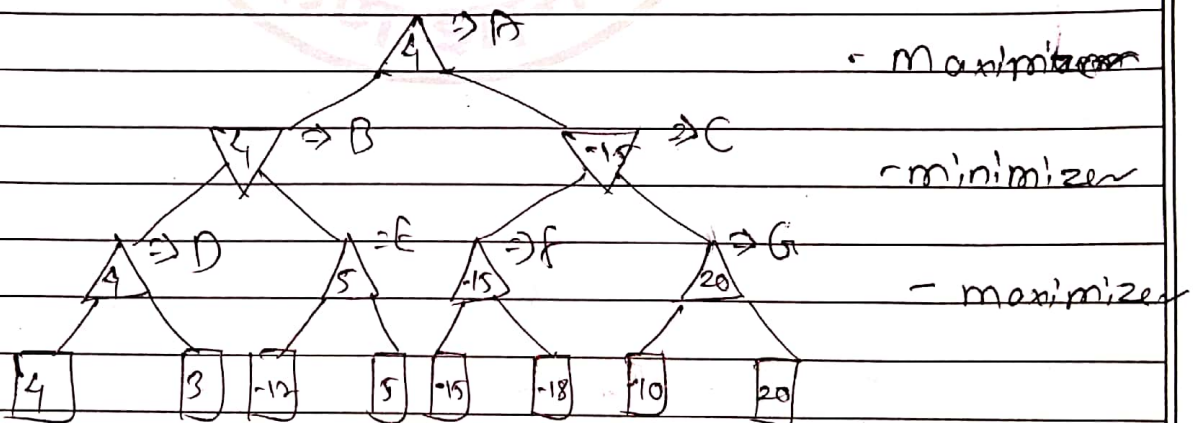 4 => A
- Maximizer
4 => B
-15 => C
- minimizer
4 => D
5 => E
-15 => F
20 => G
- maximizer
4 3 -12 5 -15 -18 -10 20